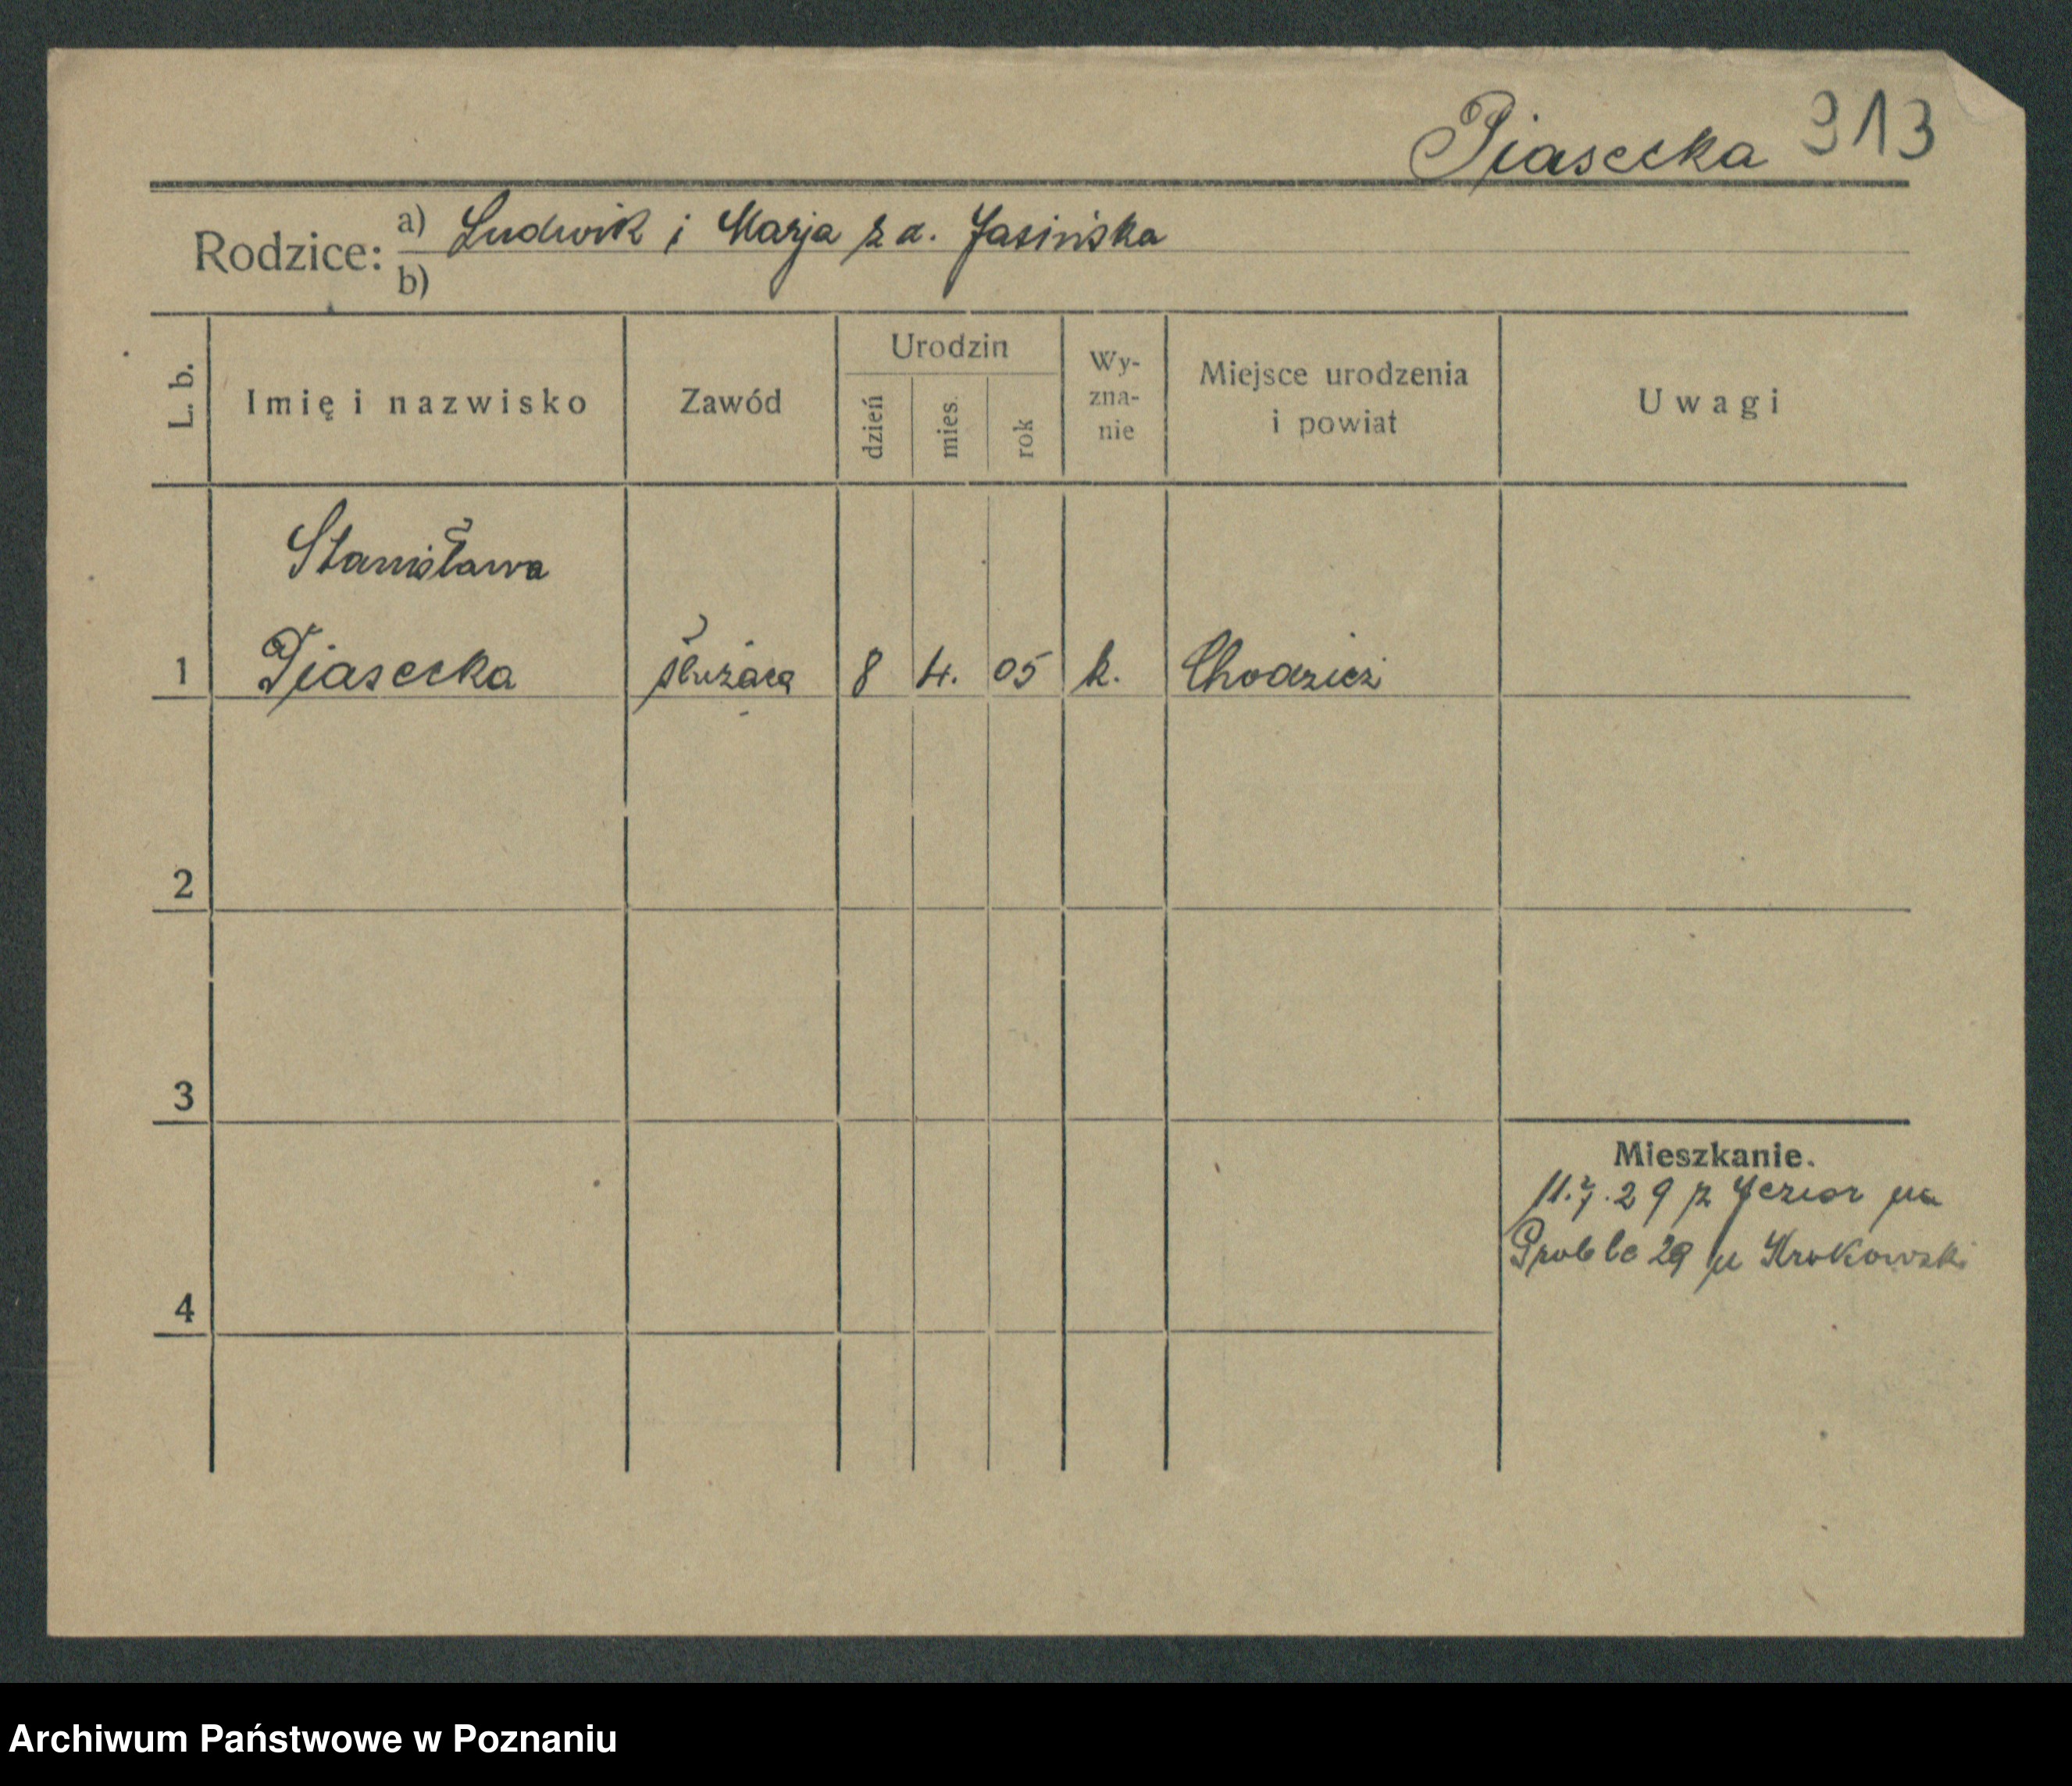 Piasecka 913
Rodzice: a) Ludwik i Marja z d. Jasińska
b)
L. b. Imię i nazwisko Zawód Urodzin dzień mies. rok Wy-zna-nie Miejsce urodzenia i powiat Uwagi
Stanisława
1 Piasecka służąca 8 4. 05 k. Chodzież
2
3
Mieszkanie.
11.7.29 z Jezior na
Groble 29 u Krokowski
4
Archiwum Państwowe w Poznaniu